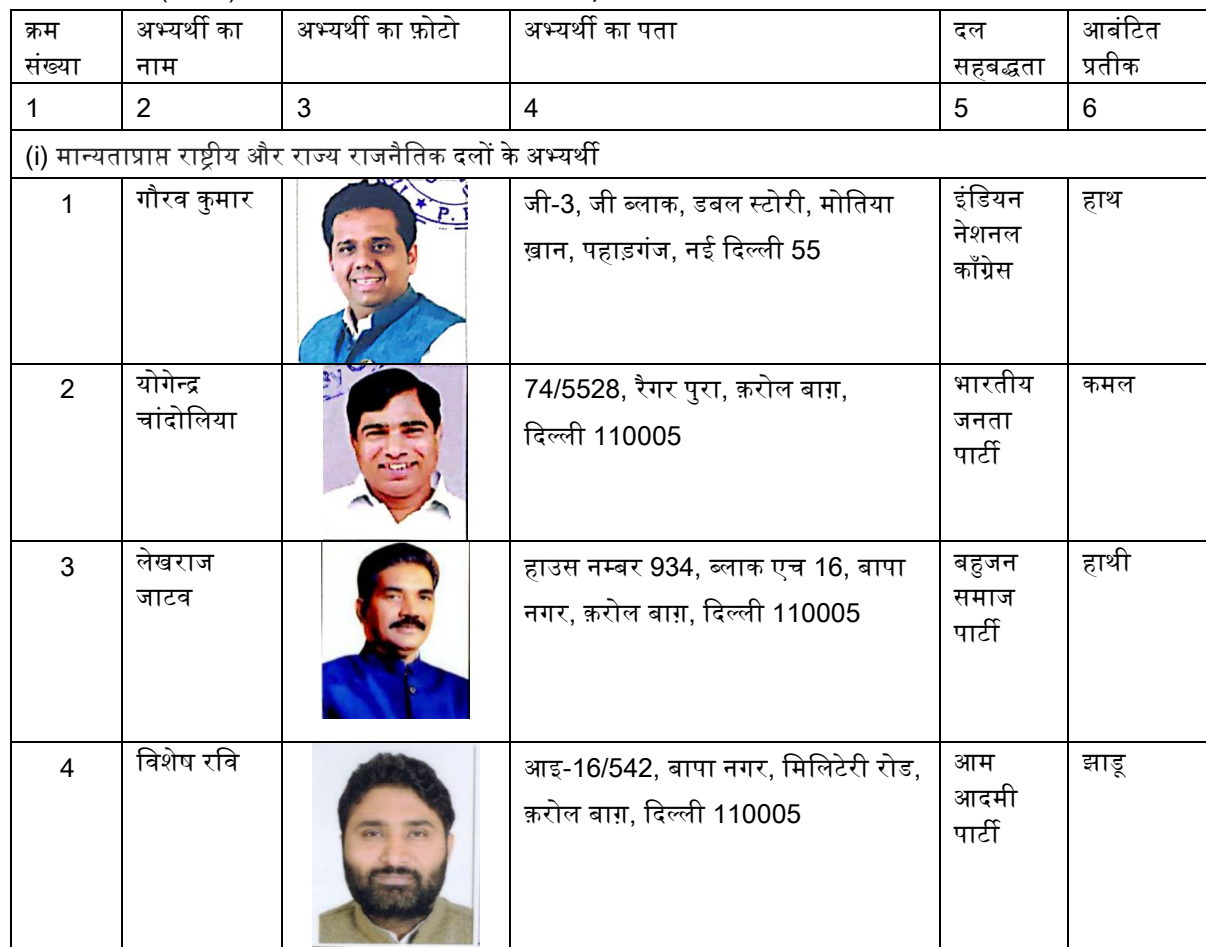 क्रम संख्या
अभ्यर्थी का नाम
अभ्यर्थी का फ़ोटो
अभ्यर्थी का पता
दल सहबद्धता
आबंटित प्रतीक
1 2 3 4 5 6
(i) मान्यताप्राप्त राष्ट्रीय और राज्य राजनैतिक दलों के अभ्यर्थी
1
गौरव कुमार
जी-3, जी ब्लाक, डबल स्टोरी, मोतिया
ख़ान, पहाड़गंज, नई दिल्ली 55
इंडियन
नेशनल
काँग्रेस
हाथ
2
योगेन्द्र
चांदोलिया
74/5528, रैगर पुरा, क़रोल बाग़,
दिल्ली 110005
भारतीय
जनता
पार्टी
कमल
3
लेखराज
जाटव
हाउस नम्बर 934, ब्लाक एच 16, बापा
नगर, क़रोल बाग़, दिल्ली 110005
बहुजन
समाज
पार्टी
हाथी
4
विशेष रवि
आइ-16/542, बापा नगर, मिलिटेरी रोड,
क़रोल बाग़, दिल्ली 110005
आम
आदमी
पार्टी
झाडू